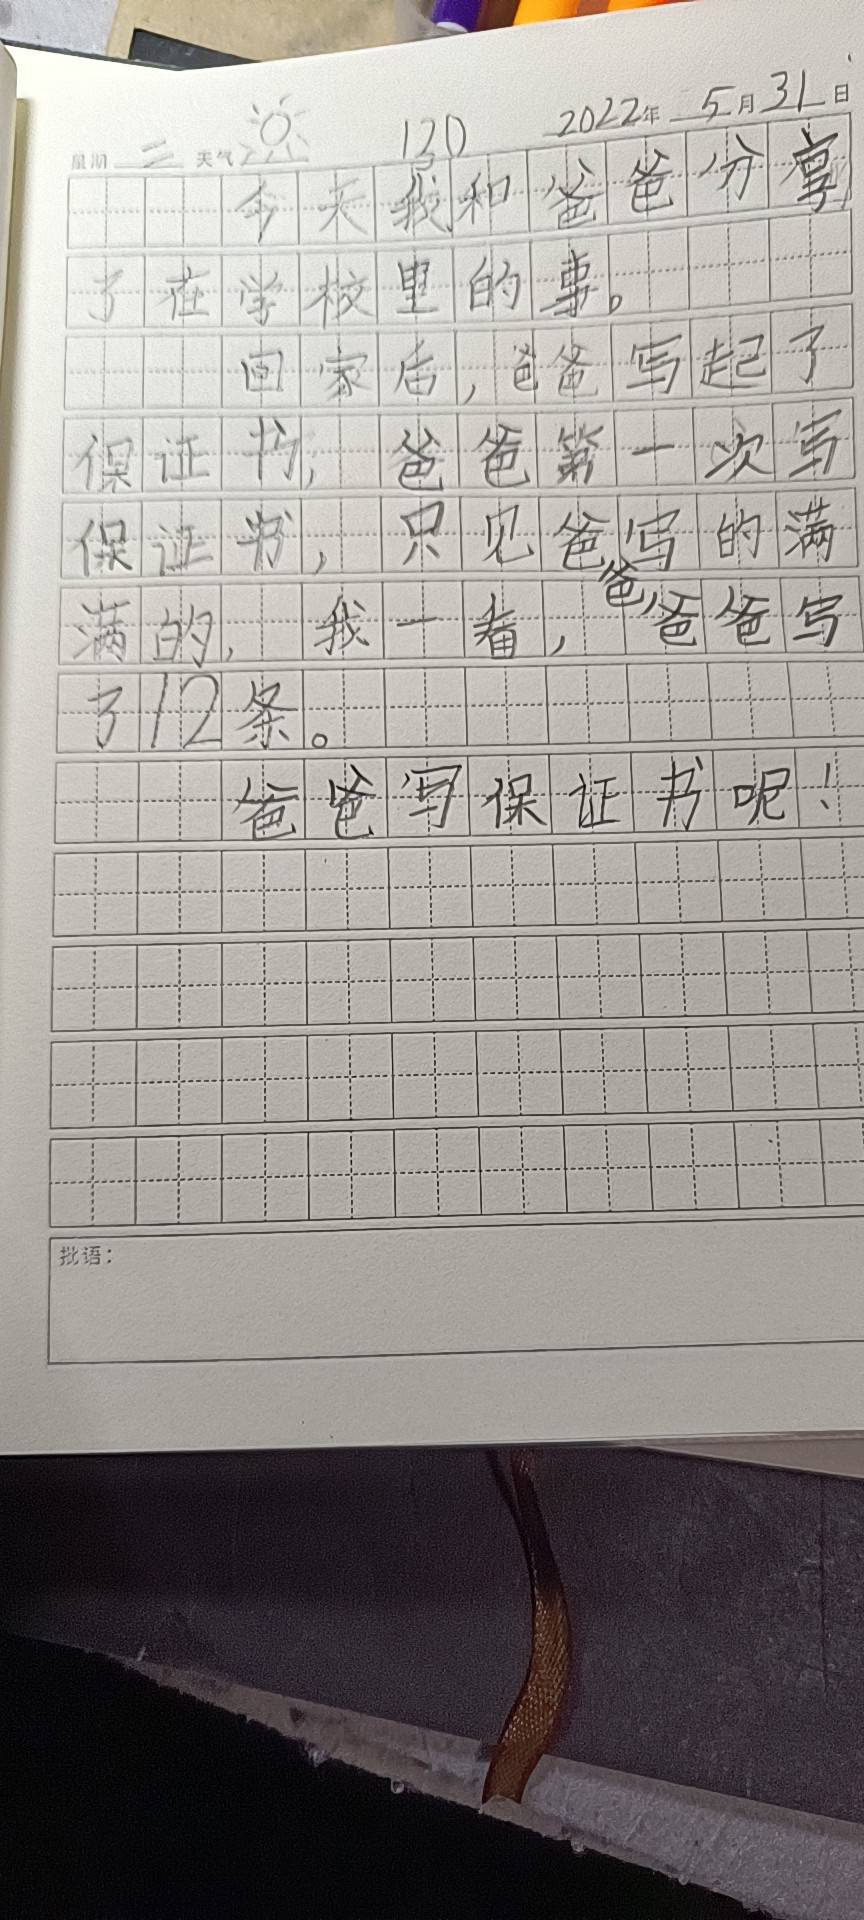 120
2022年 5月31日
星期 二 天气
今天我和爸爸分享
了在学校里的事。
回家后，爸爸写起了
保证书，爸爸第一次写
保证书，只见爸爸写的满
满的，我一看，爸爸写
了12条。
爸爸写保证书呢！
批语：